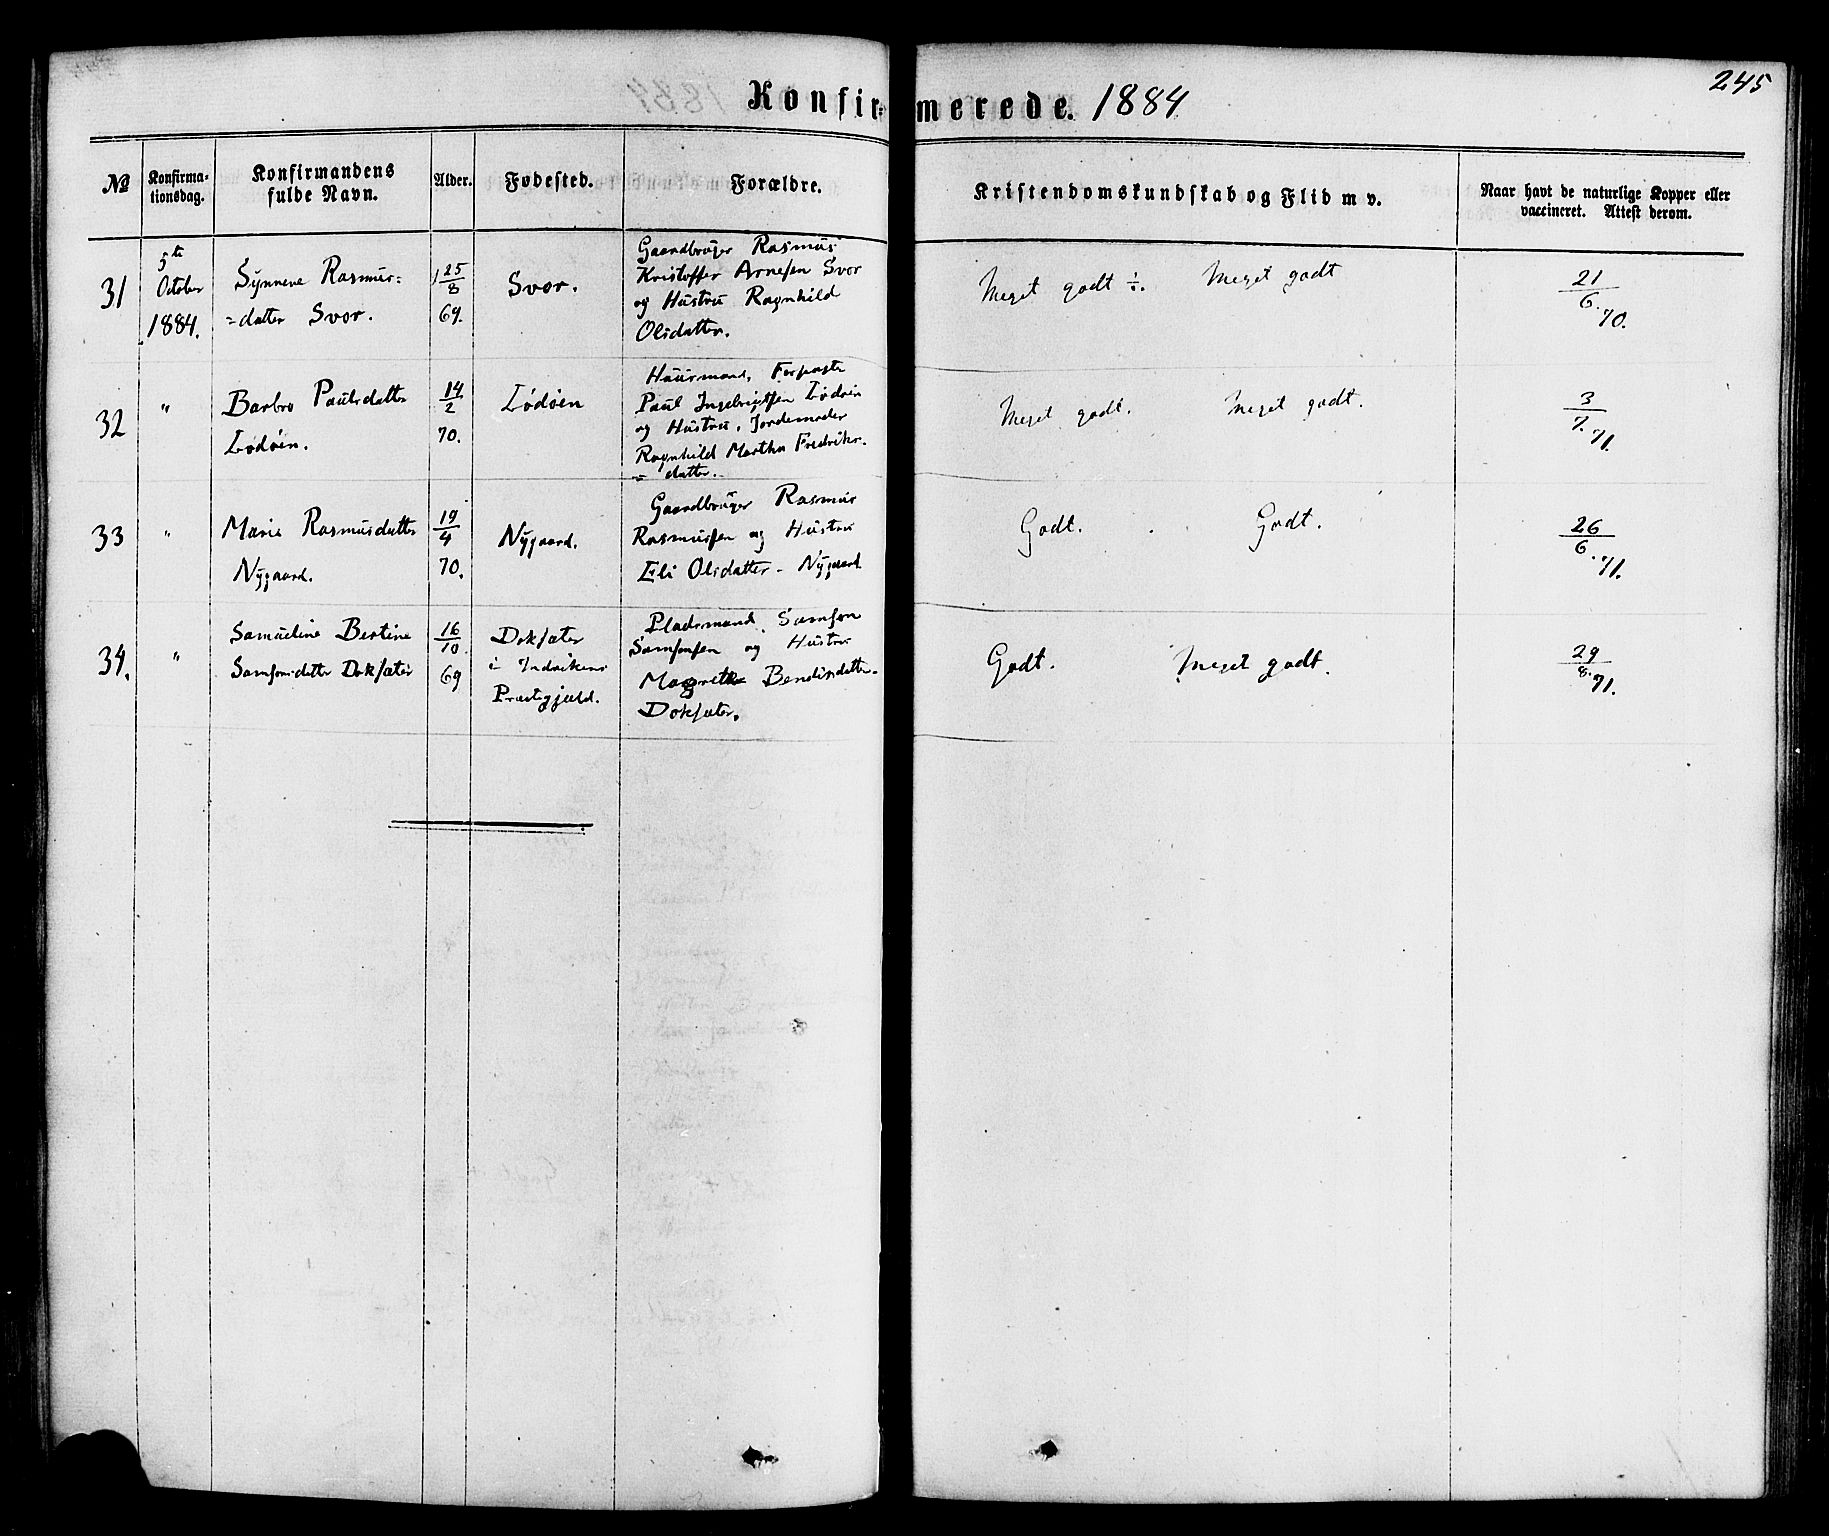 245
Konfirmerede. 1884
No
Konfirma-
tionsdag.
Konfirmandens
fulde Navn.
Alder.
Fødested.
Forældre.
Kristendomskundskab og Flid m v.
Naar havt de naturlige Kopper eller
vaccineret. Attest derom.
31
5te
October
1884.
Synneve Rasmus=
=datter Svor.
25/8
69.
Svor.
Gaardbruger Rasmus
Kristoffer Arnesen Svor
og Hustru Ragnhild
Olsdatter.
Meget godt ÷. Meget godt
21/6. 70.
32
"
Barbro Paulsdatter
Lødøen.
14/2
70.
Lødøen
Huusmand, Forpagter
Paul Ingebrigtsen Lødøen
og Hustru, Jordemoder
Ragnhild Martha Fredriks-
= datter.
Meget godt. Meget godt.
3/7. 71.
33
"
Marie Rasmusdatter
Nygaard.
19/4
70.
Nygaard.
Gaardbruger Rasmus
Rasmussen og Hustru
Eli Olsdatter - Nygaard
Godt. Godt.
26/6. 71.
34.
"
Samueline Bertine
Samsonsdatter Doksæter
16/10.
69
Doksæter
i Indvikens
Præstegjæld.
Pladsmand Samson
Samsonsen og Hustru
Magrethe Bendixdatter
Doksæter.
Godt. Meget godt.
29/8. 71.